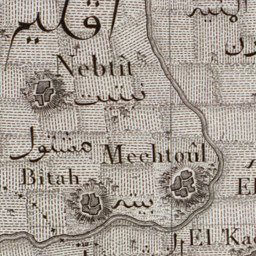 اقليم
Nebtît
نبتيت
مشتول
Mechtoûl
Bitah
بيته
El
El Ka